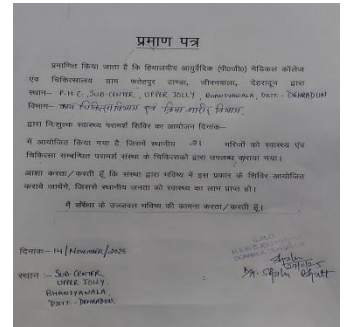 प्रमाण पत्र
प्रमाणित किया जाता है कि हिमालयीय आयुर्वेदिक (पी०जी०) मेडिकल कॉलेज
एवं चिकित्सालय ग्राम फतेहपुर टाण्डा, जीवनवाला, देहरादून द्वारा
स्थान- P.H.C., SUB-CENTER, UPPER JOLLY, BHANIYAWALA, DSTT.- DEHRADUN
विभाग- काय चिकित्सा विभाग एवं क्रिया शारीर विभाग
द्वारा निःशुल्क स्वास्थ्य परामर्श शिविर का आयोजन दिनांक-
में आयोजित किया गया है, जिसमें स्थानीय मरीजों को स्वास्थ्य एवं
चिकित्सा सम्बन्धित परामर्श संस्था के चिकित्सकों द्वारा उपलब्ध कराया गया।
आशा करता/करती हूँ कि संस्था द्वारा भविष्य में इस प्रकार के शिविर आयोजित
कराये जायेंगे, जिससे स्थानीय जनता को स्वास्थ्य का लाभ प्राप्त हो।
मैं संस्था के उज्जवल भविष्य की कामना करता/करती हूँ।
दिनांकः- 14/November/2025
स्थान :- SUB CENTER
UPPER JOLLY
BHANIYAWALA
DSTT- DEHRADUN